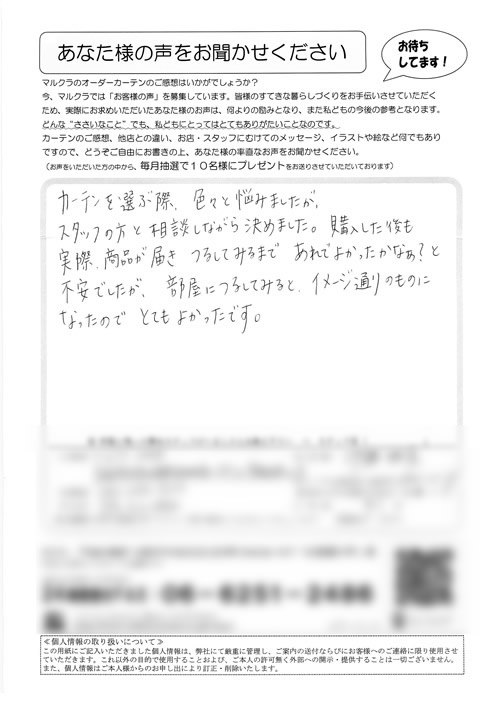 あなた様の声をお聞かせください
お待ち
してます！
マルクラのオーダーカーテンのご感想はいかがでしょうか？
今、マルクラでは「お客様の声」を募集しています。皆様のすてきな暮らしづくりをお手伝いさせていただく
ため、実際にお求めいただいたあなた様のお声は、何よりの励みとなり、また私どもの今後の参考となります。
どんな“ささいなこと”でも、私どもにとってはとてもありがたいことなのです。
カーテンのご感想、他店との違い、お店・スタッフにむけてのメッセージ、イラストや絵など何でもあり
ですので、どうぞご自由にお書きの上、あなた様の率直なお声をお聞かせください。
（お声をいただいた方の中から、毎月抽選で１０名様にプレゼントをお送りさせていただいております）
カーテンを選ぶ際、色々と悩みましたが、
スタッフの方と相談しながら決めました。購入した後も
実際、商品が届き つるしてみるまで あれでよかったかなぁ？と
不安でしたが、部屋につるしてみると、イメージ通りのものに
なったので とてもよかったです。
06-6251-2486
≪個人情報の取り扱いについて≫
この用紙にご記入いただきました個人情報は、弊社にて厳重に管理し、ご案内の送付ならびにお客様へのご連絡に限り使用させ
ていただきます。これ以外の目的で使用することおよび、ご本人の許可無く外部への開示・提供することは一切ございません。
また、個人情報はご本人様からのお申し出により訂正・削除いたします。